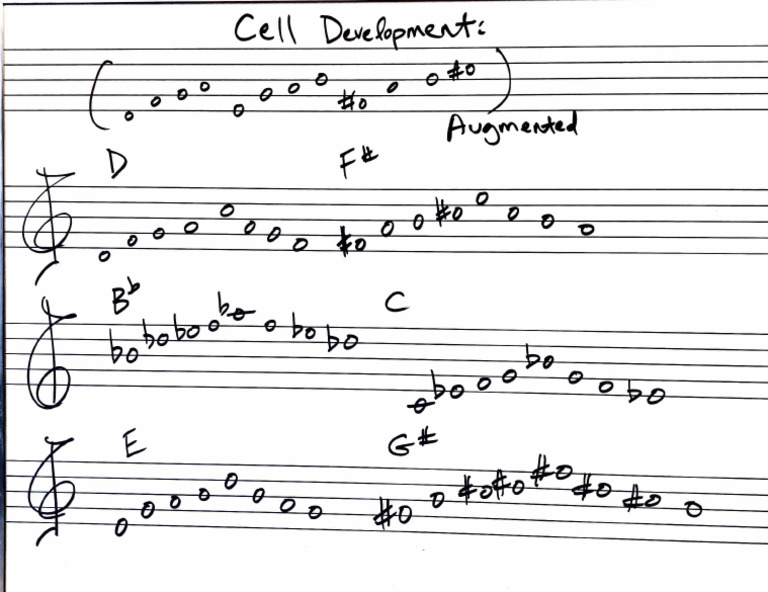 Cell Development:
Augmented
D F#
Bb C
E G#